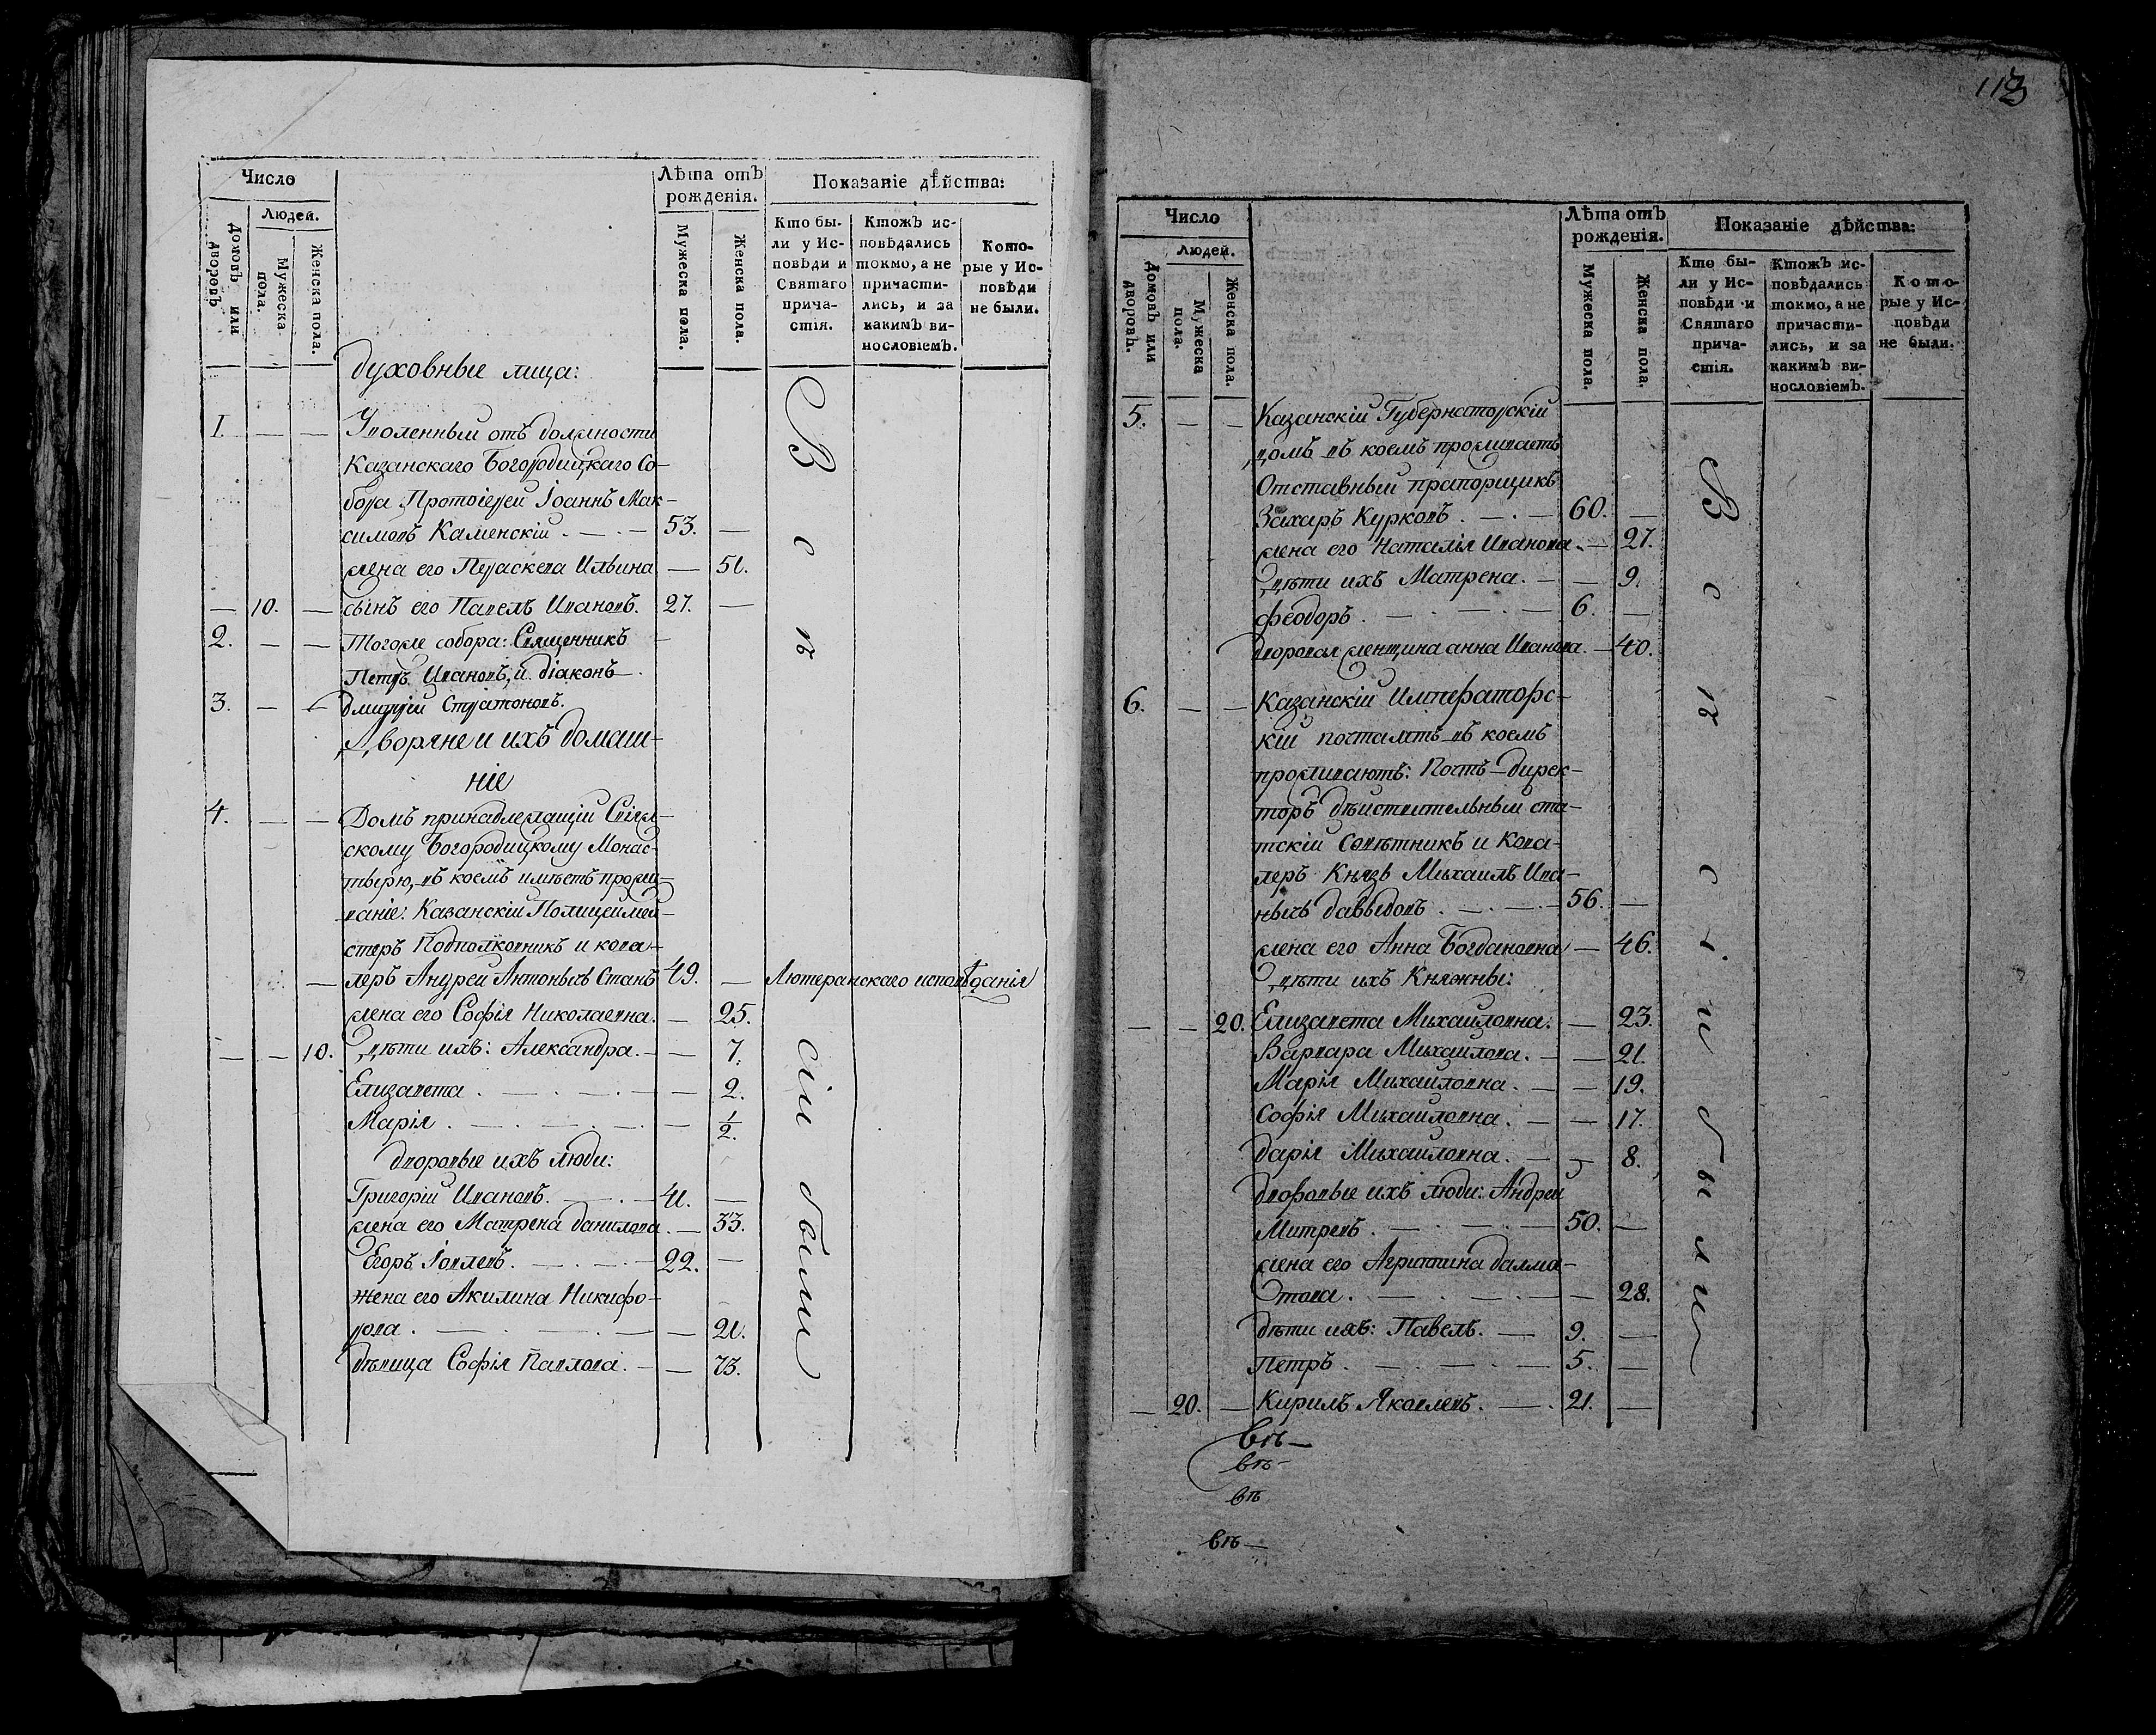 Число
Людей.
Домовъ или дворовъ
Мужеска пола.
Женска пола.
Лѣта отъ рожденія.
Мужеска пола.
Женска пола.
Показаніе дѣйства:
Кто были у Исповѣди и Святаго причастія.
Ктожъ исповѣдались токмо, а не причастились, и за какимъ винословіемъ.
Которые у Исповѣди не были.
духовные лица:
1. — — Уволенный отъ должности
Казанскаго Богородицкаго Со-
бора Протоіерей Іоаннъ Мак-
симовъ Каменскій . — . — 53. —
жена его Параскева Ильина — 51.
— 10. — сынъ его Павелъ Ивановъ. 27. —
2. — — Тогоже собора: Священникъ
Петръ Ивановъ, и діаконъ
3. — — Дмитрій Стратоновъ.
Дворяне и ихъ домаш-
ніе
4. — — Домъ принадлежащій
скому Богородицкому Монас-
тырю, въ коемъ имѣетъ прожи-
ваніе: Казанскій Полицеймей-
стеръ Подполковникъ и кава-
— леръ Андрей Антонычъ Станъ 49. — Лютеранскаго исповѣданія
жена его Софія Николаевна. — 25.
— — 10. Дѣти ихъ: Александра. — — 7.
Елизавета . — . — . — — 2.
Марія . — . — . — . — ½.
дворовые ихъ люди:
Григорій Ивановъ. — . — 41. —
жена его Матрена данилова. — 33.
Егоръ Іовлевъ. — . — . — 22. —
жена его Акилина Никифо-
рова . — . — . — — 21.
дѣвица Софія Павлова. — — 73.
Всѣ
сіи были
113
Число
Людей.
Домовъ или дворовъ.
Мужеска пола.
Женска пола.
Лѣта отъ рожденія.
Мужеска пола.
Женска пола.
Показаніе дѣйства:
Кто были у Исповѣди и Святаго причастія.
Ктожъ исповѣдались токмо, а не причастились, и за какимъ винословіемъ.
Которые у Исповѣди не были.
5. — — Казанскій Губернаторскій
домъ въ коемъ проживаетъ
Отставный прапорщикъ
Захаръ Курковъ . — . — 60. —
жена его Наталія Иванова. — 27.
Дѣти ихъ Матрена. — — 9.
Феодоръ . — . — . — 6. —
дворовая женщина анна Иванова. — 40.
6. — — Казанскій Императорс-
кій почтамтъ въ коемъ
проживаютъ: Почтъ-дирек-
торъ дѣйствительный ста-
тскій Совѣтникъ и Кава-
леръ Князь Михаилъ Ива-
нычъ давыдовъ . — . — . — 56. —
жена его Анна Богдановна — 46.
Дѣти ихъ Княжны:
— — 20. Елизавета Михаиловна. — 23.
Варвара Михаилова. — — 21.
Марія Михаиловна. — — 19.
Софія Михаиловна. — — 17.
дарія Михаиловна. — — 8.
дворовые ихъ люди: Андрей
Митревъ . — . — . — 50. —
жена его Агриппина далма-
това . — . — . — — 28.
дѣти ихъ: Павелъ. — 9. —
Петръ . — . — . — 5. —
— 20. — Кирилъ Яковлевъ. — . 21. —
Всѣ сіи были
въ—
въ-
въ
въ—